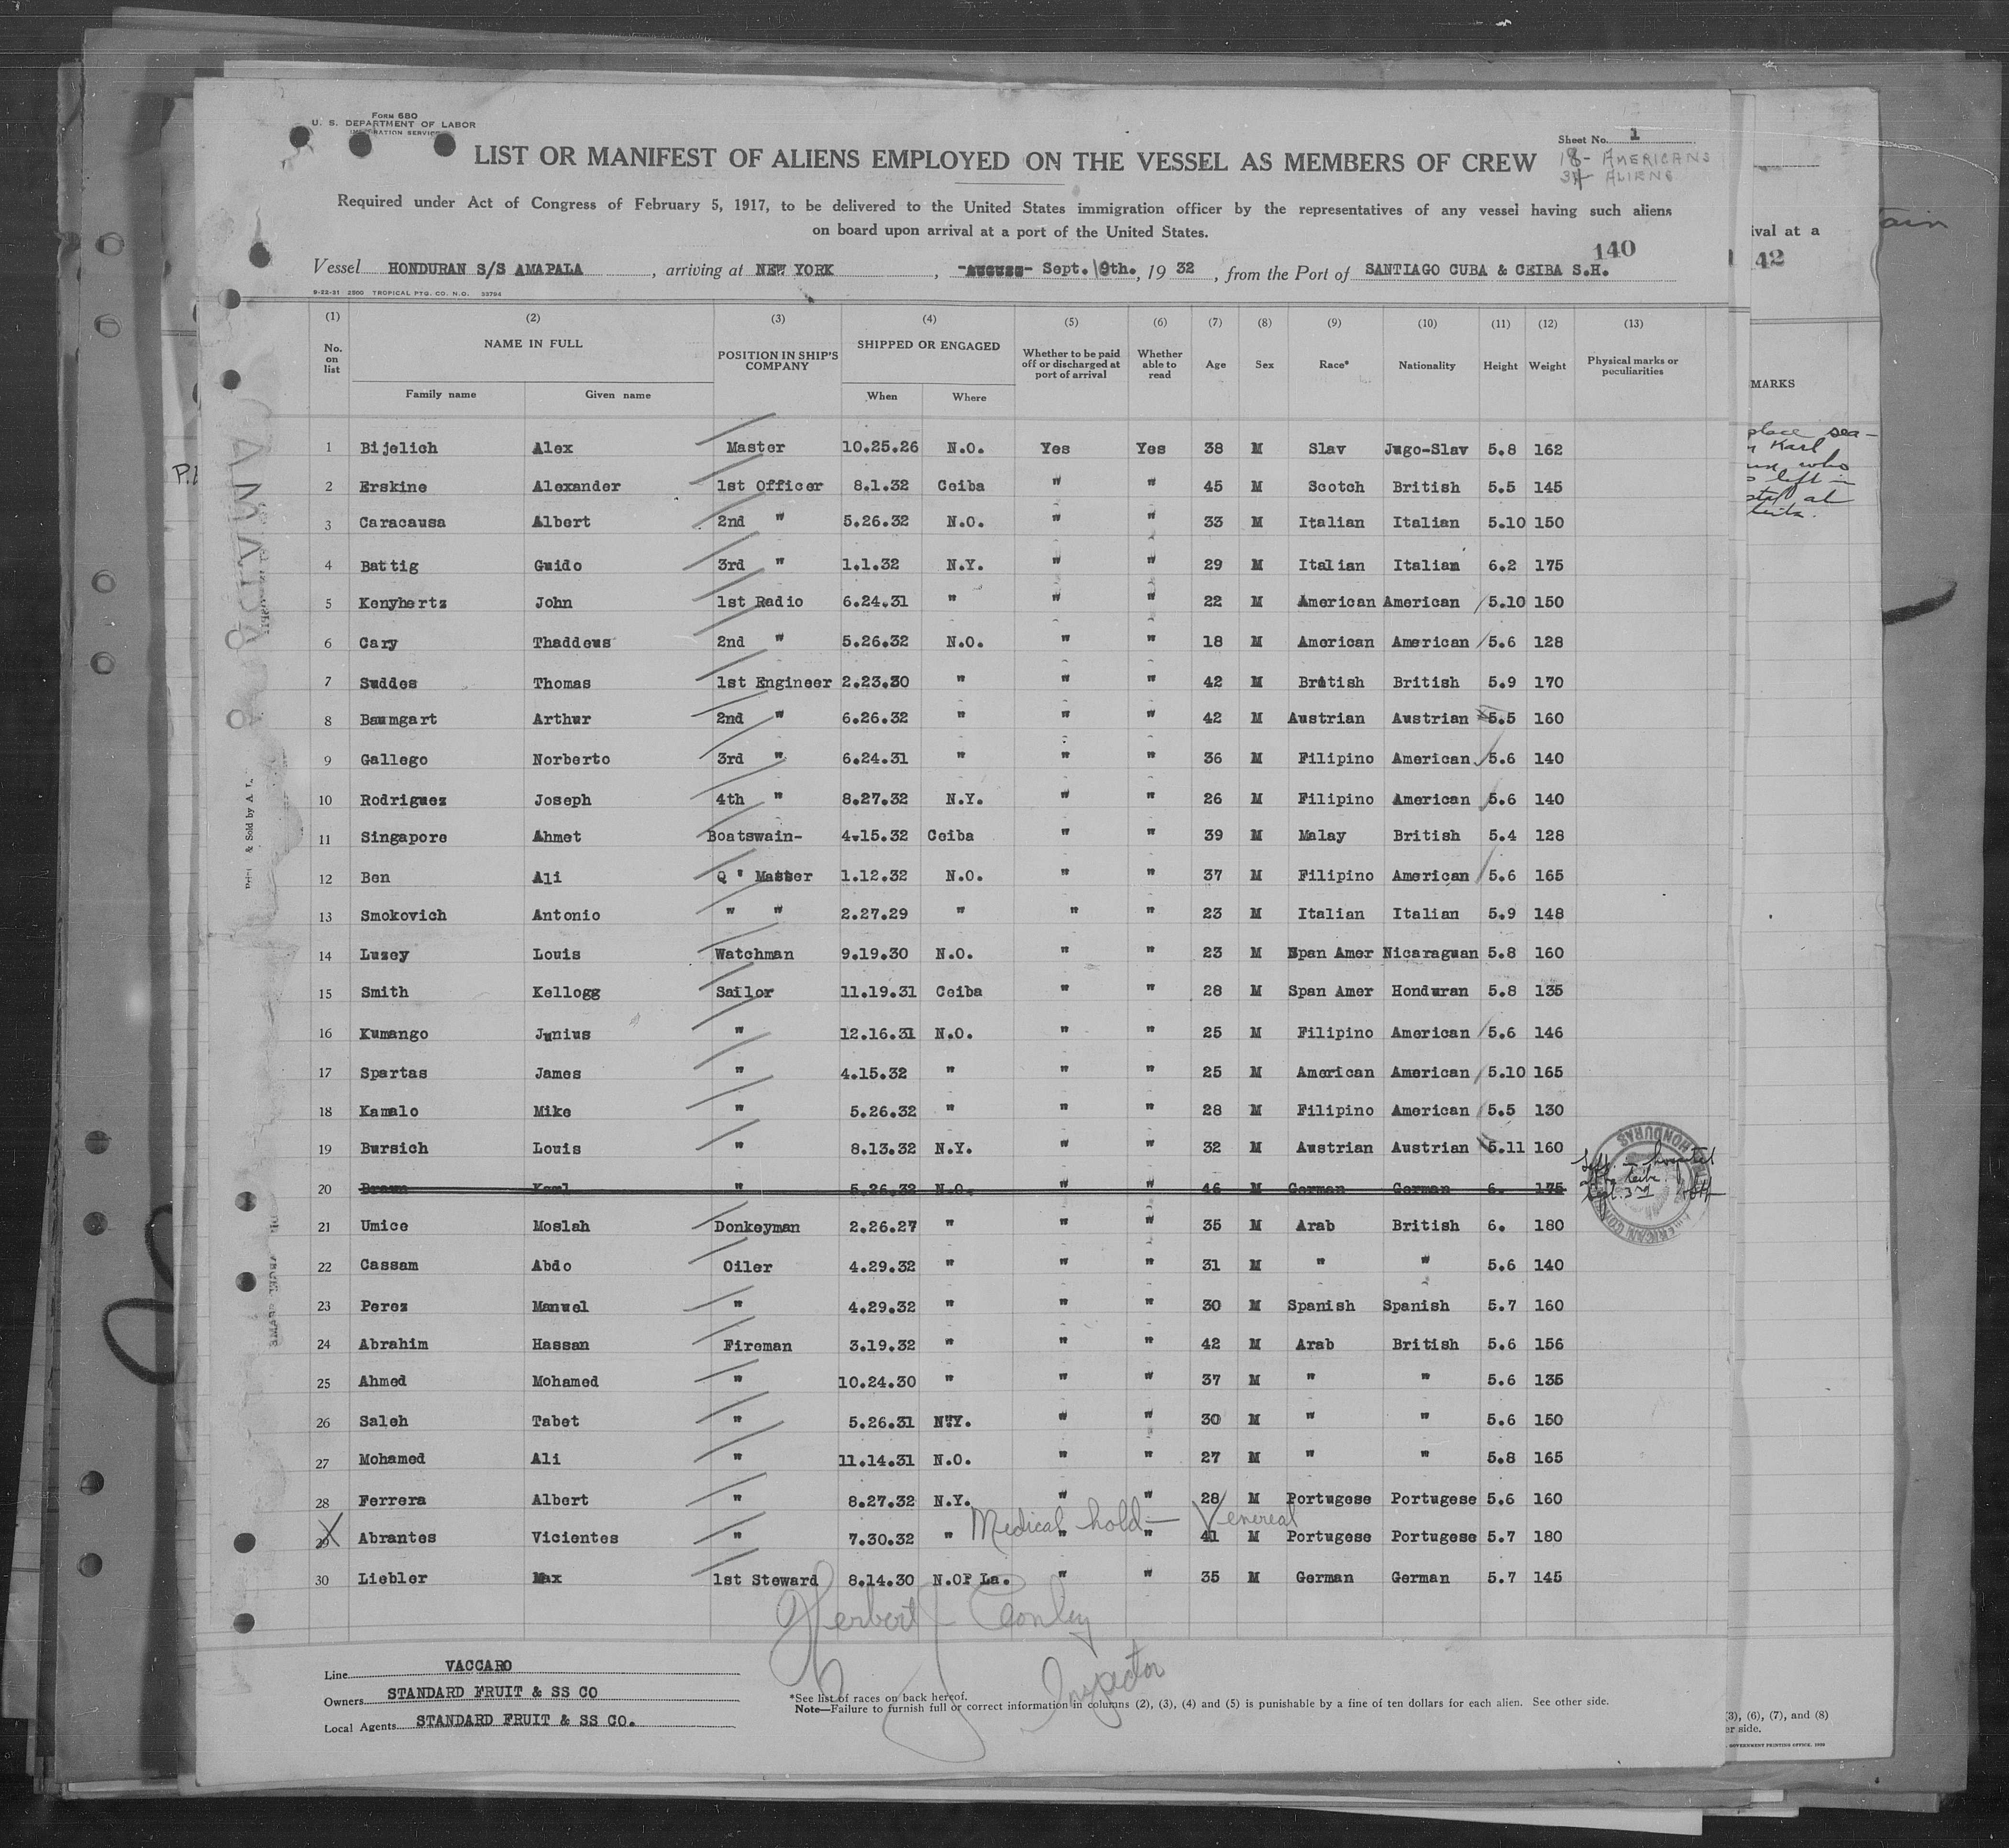 FORM 680
U. S. DEPARTMENT OF LABOR
IMMIGRATION SERVICE
Sheet No. 1
18- AMERICANS
34 ALIENS
LIST OR MANIFEST OF ALIENS EMPLOYED ON THE VESSEL AS MEMBERS OF CREW
Required under Act of Congress of February 5, 1917, to be delivered to the United States immigration officer by the representatives of any vessel having such aliens
on board upon arrival at a port of the United States.
140
Vessel HONDURAN S/S AMAPALA, arriving at NEW YORK, August Sept. 10th., 19 32, from the Port of SANTIAGO CUBA & CEIBA S.H.
9-22-31 2500 TROPICAL PTG. CO. N.O. 33794
(1) (2) (3) (4) (5) (6) (7) (8) (9) (10) (11) (12) (13)
No. on list NAME IN FULL POSITION IN SHIP'S COMPANY SHIPPED OR ENGAGED Whether to be paid off or discharged at port of arrival Whether able to read Age Sex Race* Nationality Height Weight Physical marks or peculiarities
Family name Given name When Where
1 Bijelich Alex Master 10.25.26 N.O. Yes Yes 38 M Slav Jugo-Slav 5.8 162
2 Erskine Alexander 1st Officer 8.1.32 Ceiba " " 45 M Scotch British 5.5 145
3 Caracausa Albert 2nd " 5.26.32 N.O. " " 33 M Italian Italian 5.10 150
4 Battig Guido 3rd " 1.1.32 N.Y. " " 29 M Italian Italian 6.2 175
5 Kenyhertz John 1st Radio 6.24.31 " " " 22 M American American 5.10 150
6 Cary Thaddeus 2nd " 5.26.32 N.O. " " 18 M American American 5.6 128
7 Suddes Thomas 1st Engineer 2.23.30 " " " 42 M British British 5.9 170
8 Baumgart Arthur 2nd " 6.26.32 " " " 42 M Austrian Austrian 5.5 160
9 Gallego Norberto 3rd " 6.24.31 " " " 36 M Filipino American 5.6 140
10 Rodriguez Joseph 4th " 8.27.32 N.Y. " " 26 M Filipino American 5.6 140
11 Singapore Ahmet Boatswain- 4.15.32 Ceiba " " 39 M Malay British 5.4 128
12 Ben Ali Q ' Master 1.12.32 N.O. " " 37 M Filipino American 5.6 165
13 Smokovich Antonio " " 2.27.29 " " " 23 M Italian Italian 5.9 148
14 Luzey Louis Watchman 9.19.30 N.O. " " 23 M Span Amer Nicaraguan 5.8 160
15 Smith Kellogg Sailor 11.19.31 Ceiba " " 28 M Span Amer Honduran 5.8 135
16 Kumango Junius " 12.16.31 N.O. " " 25 M Filipino American 5.6 146
17 Spartas James " 4.15.32 " " " 25 M American American 5.10 165
18 Kamalo Mike " 5.26.32 " " " 28 M Filipino American 5.5 130
19 Bursich Louis " 8.13.32 N.Y. " " 32 M Austrian Austrian 5.11 160
20 Braun Karl " 5.26.32 N.O. " " 46 M German German 6. 175 Left in hospital at La Ceiba Sept. 3rd
21 Umice Moslah Donkeyman 2.26.27 " " " 35 M Arab British 6. 180
22 Cassam Abdo Oiler 4.29.32 " " " 31 M " " 5.6 140
23 Perez Manuel " 4.29.32 " " " 30 M Spanish Spanish 5.7 160
24 Abrahim Hassan Fireman 3.19.32 " " " 42 M Arab British 5.6 156
25 Ahmed Mohamed " 10.24.30 " " " 37 M " " 5.6 135
26 Saleh Tabet " 5.26.31 N.Y. " " 30 M " " 5.6 150
27 Mohamed Ali " 11.14.31 N.O. " " 27 M " " 5.8 165
28 Ferrera Albert " 8.27.32 N.Y. " " 28 M Portugese Portugese 5.6 160
Medical hold — Venereal
29 Abrantes Vicientes " 7.30.32 " " " 41 M Portugese Portugese 5.7 180
30 Liebler Max 1st Steward 8.14.30 N.O. La. " " 35 M German German 5.7 145
Herbert J Conley
Inspector
Line VACCARO
Owners STANDARD FRUIT & SS CO
Local Agents STANDARD FRUIT & SS CO.
*See list of races on back hereof.
Note—Failure to furnish full or correct information in columns (2), (3), (4) and (5) is punishable by a fine of ten dollars for each alien. See other side.
& Sold by A.
HONDURAS
ival at a
42
MARKS
place sea-
Karl
who
left in
at
tain
(3), (6), (7), and (8)
er side.
GOVERNMENT PRINTING OFFICE